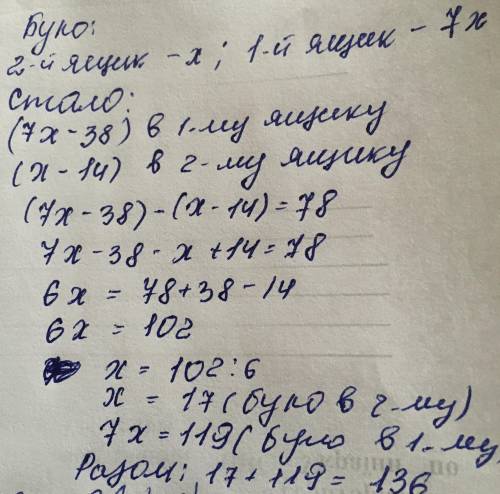 Було:
2-й ящик - х; 1-й ящик - 7х
Стало:
(7х - 38) в 1-му ящику
(х - 14) в 2-му ящику
(7х - 38) - (х - 14) = 78
7х - 38 - х + 14 = 78
6х = 78 + 38 - 14
6х = 102
х = 102 : 6
х = 17 (було в 2-му)
7х = 119 (було в 1-му)
Разом: 17 + 119 = 136